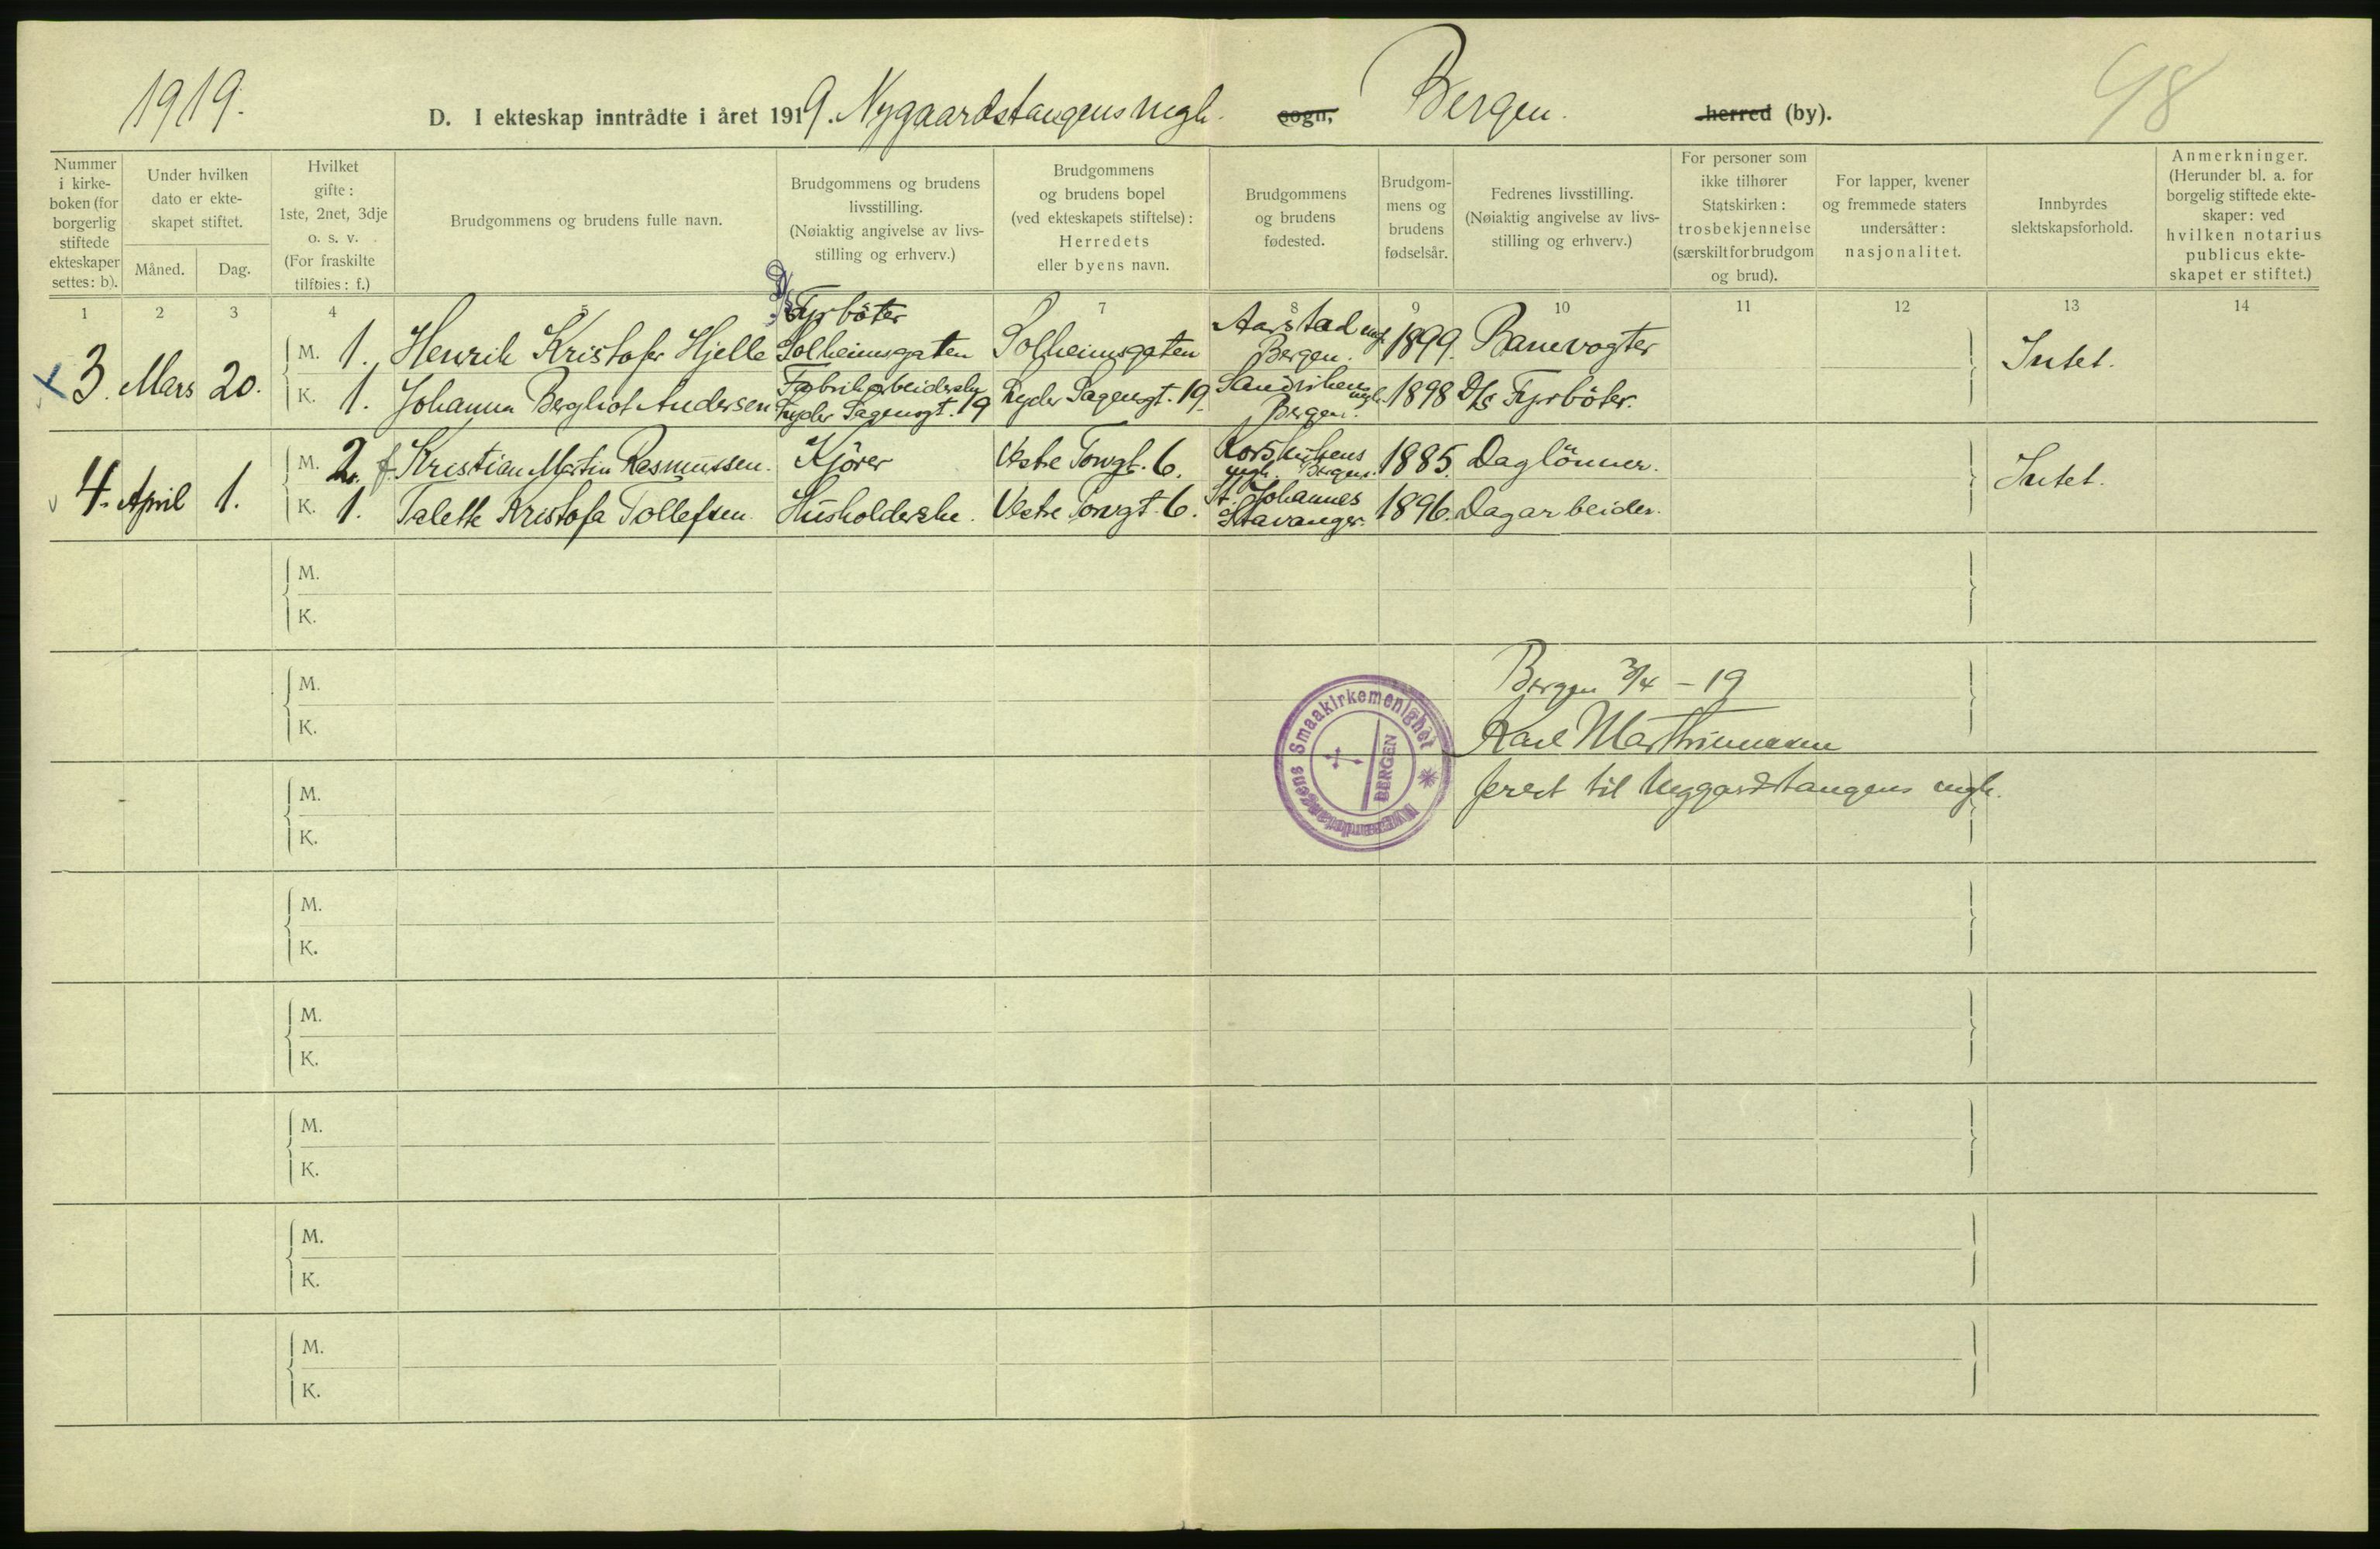 1919.
D. I ekteskap inntrådte i året 1919. Nygaardstangens mgh. sogn, Bergen. herred (by).
98
Nummer i kirke-boken (for borgerlig stiftede ekteskaper settes: b).
Under hvilken dato er ekte-skapet stiftet.
Måned.
Dag.
Hvilket gifte: 1ste, 2net, 3dje o. s. v. (For fraskilte tilføies: f.)
Brudgommens og brudens fulle navn.
Brudgommens og brudens livsstilling. (Nøiaktig angivelse av livs-stilling og erhverv.)
Brudgommens og brudens bopel (ved ekteskapets stiftelse): Herredets eller byens navn.
Brudgommens og brudens fødested.
Brudgom-mens og brudens fødselsår.
Fedrenes livsstilling. (Nøiaktig angivelse av livs-stilling og erhverv.)
For personer som ikke tilhører Statskirken: trosbekjennelse (særskilt for brudgom og brud).
For lapper, kvener og fremmede staters undersåtter: nasjonalitet.
Innbyrdes slektskapsforhold.
Anmerkninger. (Herunder bl. a. for borgerlig stiftede ekte-skaper: ved hvilken notarius publicus ekte-skapet er stiftet.)
1 2 3 4 5 7 8 9 10 11 12 13 14
3. Mars 20.
M. 1. Henrik Kristofer Hjelle D/s Fyrböter Solheimsgaten Solheimsgaten Aarstad mgh. Bergen. 1899. Banevogter Intet.
K. 1. Johanna Bergliot Andersen Fabrikarbeiderske Lyder Sagensgt. 19 Lyder Sagensgt. 19. Sandvikens mgh. Bergen. 1898 D/s Fyrböter.
4. April 1.
M. 2. f. Kristian Martin Rasmussen. Kjörer Vestre Torvgt. 6. Korskirkens mgh. Bergen. 1885. Daglönner. Intet.
K. 1. Talette Kristofa Tollefsen Husholderske. Vestre Torvgt. 6. St. Johannes Stavanger. 1896. Dagarbeider.
M.
K.
M.
K.
Bergen 3/4 - 19
Karl Marthinussen
prest til Nygaardstangens mgh.
Nygaardstangens Smaakirkemenighet
BERGEN
M.
K.
M.
K.
M.
K.
M.
K.
M.
K.
M.
K.